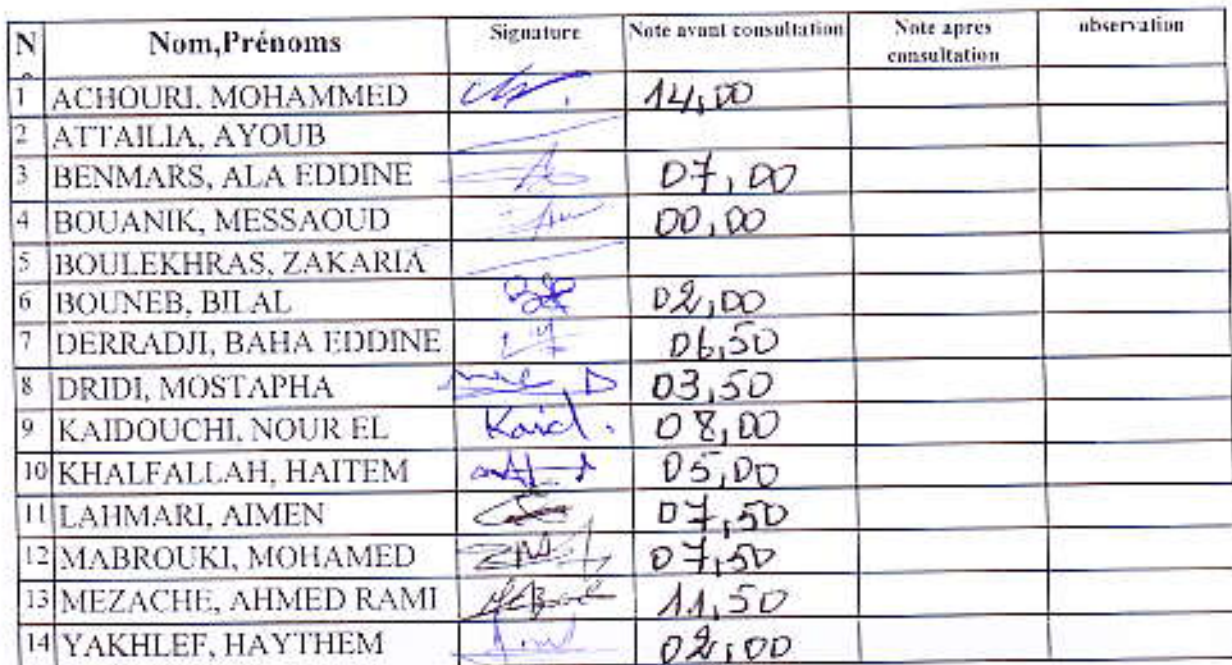 N Nom,Prénoms Signature Note avant consultation Note apres consultation observation
1 ACHOURI, MOHAMMED 14,00
2 ATTAILIA, AYOUB
3 BENMARS, ALA EDDINE 07,00
4 BOUANIK, MESSAOUD 00,00
5 BOULEKHRAS, ZAKARIA
6 BOUNEB, BILAL 02,00
7 DERRADJI, BAHA EDDINE 06,50
8 DRIDI, MOSTAPHA 03,50
9 KAIDOUCHI, NOUR EL Kaid. 08,00
10 KHALFALLAH, HAITEM 05,00
11 LAHMARI, AIMEN 07,50
12 MABROUKI, MOHAMED 07,50
13 MEZACHE, AHMED RAMI 11,50
14 YAKHLEF, HAYTHEM 02,00